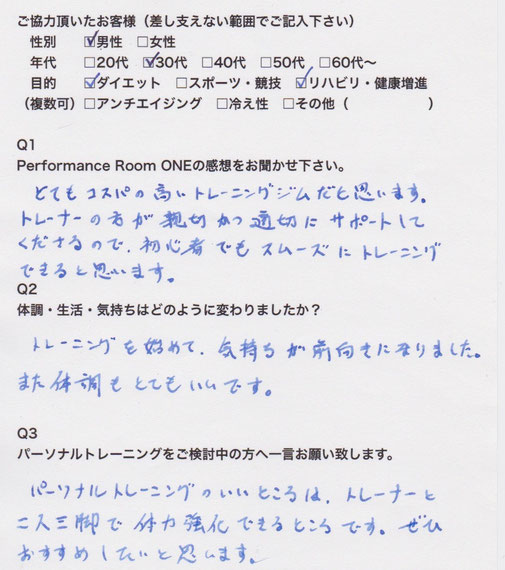 ご協力頂いたお客様（差し支えない範囲でご記入下さい）
性別 ☑男性 □女性
年代 □20代 ☑30代 □40代 □50代 □60代〜
目的 ☑ダイエット □スポーツ・競技 ☑リハビリ・健康増進
（複数可）□アンチエイジング □冷え性 □その他（ ）
Q1
Performance Room ONEの感想をお聞かせ下さい。
とてもコスパの高いトレーニングジムだと思います。
トレーナーの方が親切かつ適切にサポートして
くださるので、初心者でもスムーズにトレーニング
できると思います。
Q2
体調・生活・気持ちはどのように変わりましたか？
トレーニングを始めて、気持ちが前向きになりました。
また体調もとてもいいです。
Q3
パーソナルトレーニングをご検討中の方へ一言お願い致します。
パーソナルトレーニングのいいところは、トレーナーと
二人三脚で体力強化できるところです。ぜひ
おすすめしたいと思います。